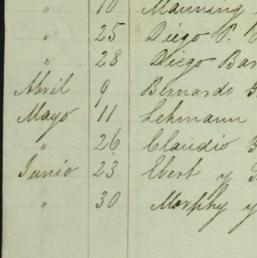 " 10 Manning
" 25 Diego P.
" 28 Diego Bar
Abril 9 Bernardo
Mayo 11 Lehmann
" 26 Claudio
Junio 23 Ebert y
" 30 Morphy y